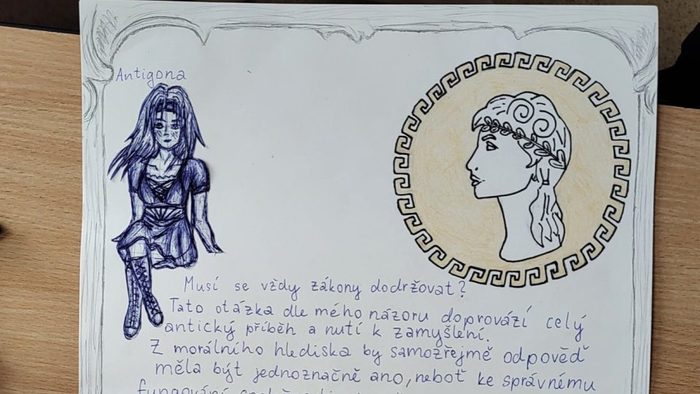 Antigona
Musí se vždy zákony dodržovat?
Tato otázka dle mého názoru doprovází celý
antický příběh a nutí k zamyšlení.
Z morálního hlediska by samozřejmě odpověď
měla být jednoznačně ano, neboť ke správnému
fungování